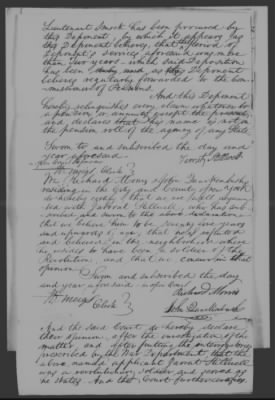 Lieutenant Smock has been procured by
this Deponent, by which it appears (as
this Deponent believes) that the period of
Deponent's services aforesaid was more
than Two years which said Deposition
has been as this Deponent
believes regularly forwarded to the Com-
missioner of Pensions.
And this Deponent
hereby relinquishes every claim whatever to
a pension or annuity except the present
and declares that his name is not on
the pension roll of the agency of any State
Sworn to and subscribed the day and
year aforesaid
Clerk
We Richard Morris & John
residing in the City and County of New York
do hereby certify that we are well acquain-
ted with Garret who has sub-
scribed and sworn to the above declaration
that we believe him to be years
and upwards of age, that he is reputed
and believed in the neighborhood where
he resides to have been a soldier of the
Revolution and that we concur in that
opinion
Sworn and subscribed the day
and year aforesaid
Richard Morris
Clerk
John
And the said Court do hereby declare
their opinion, after the investigation of the
matter, and after putting the interrogatories
prescribed by the War Department that the
above named applicant Garret
was a revolutionary soldier and served as
he states. And the Court further certifies